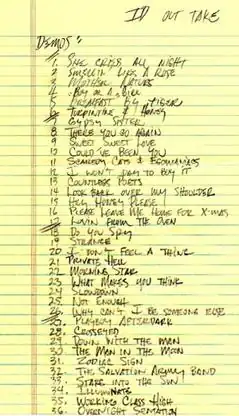 OUT TAKE
DEMOS:
1. SHE CRIES ALL NIGHT
2 SMELLIN' LIKE A ROSE
3 MOTHER NATURE
4. BOY OR A GIRL
5 BREAKFAST BY TIGER
6 TURPINTINE & HONEY
7 GYPSY SISTER
8 THERE YOU GO AGAIN
9 SWEET SWEET LOVE
10 COULD'VE BEEN YOU
11 SCAREDY CATS & EGOMANIACS
12 I WON'T PAY TO BUY IT
13 COUNTLESS POETS
14 LOOK BACK OVER MY SHOULDER
15 HEY HONEY PLEASE
16 PLEASE LEAVE ME HOME FOR X-MAS
17 LOVIN' FROM THE OVEN
18 DO YOU SPAY
19 STRANGE
20 I DON'T FEEL A THING
21 PRIVATE HELL
22. MORNING STAR
23 WHAT MAKES YOU THINK
24 SLOWDOWN
25. NOT ENOUGH
26. WHY CAN'T I BE SOMEONE ELSE
27. PLAYBOY AFTERDARK
28. CROSSEYED
29. DOWN WITH THE MAN
30. THE MAN IN THE MOON
31. ZODIAC SIGN
32. THE SALVATION ARMY BAND
33. STARE INTO THE SUN!
34. ILLUMINATE
35. WORKING CLASS HIGH
36. OVERNIGHT SENSATION